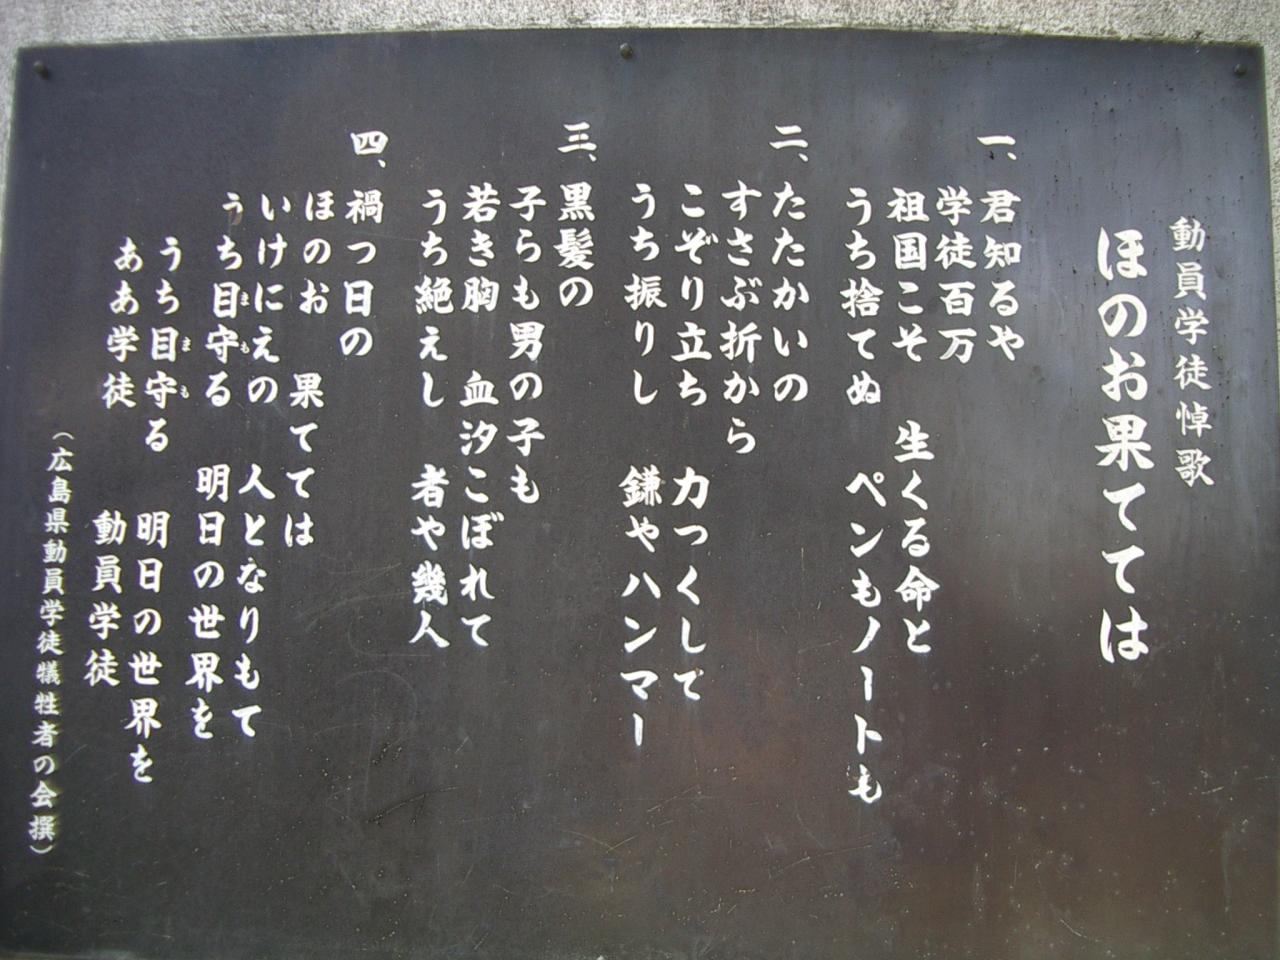 動員学徒悼歌
ほのお果てては
一、
君知るや
学徒百万
祖国こそ　生くる命と
うち捨てぬ　ペンもノートも
二、
たたかいの
すさぶ折から
こぞり立ち　力つくして
うち振りし　鎌やハンマー
三、
黒髪の
子らも男の子も
若き胸　血汐こぼれて
うち絶えし　者や幾人
四、
禍つ日の
ほのお　果てては
いけにえの　人となりもて
うち目守る　明日の世界を
まも
うち目守る　明日の世界を
まも
ああ学徒　動員学徒
（広島県動員学徒犠牲者の会撰）